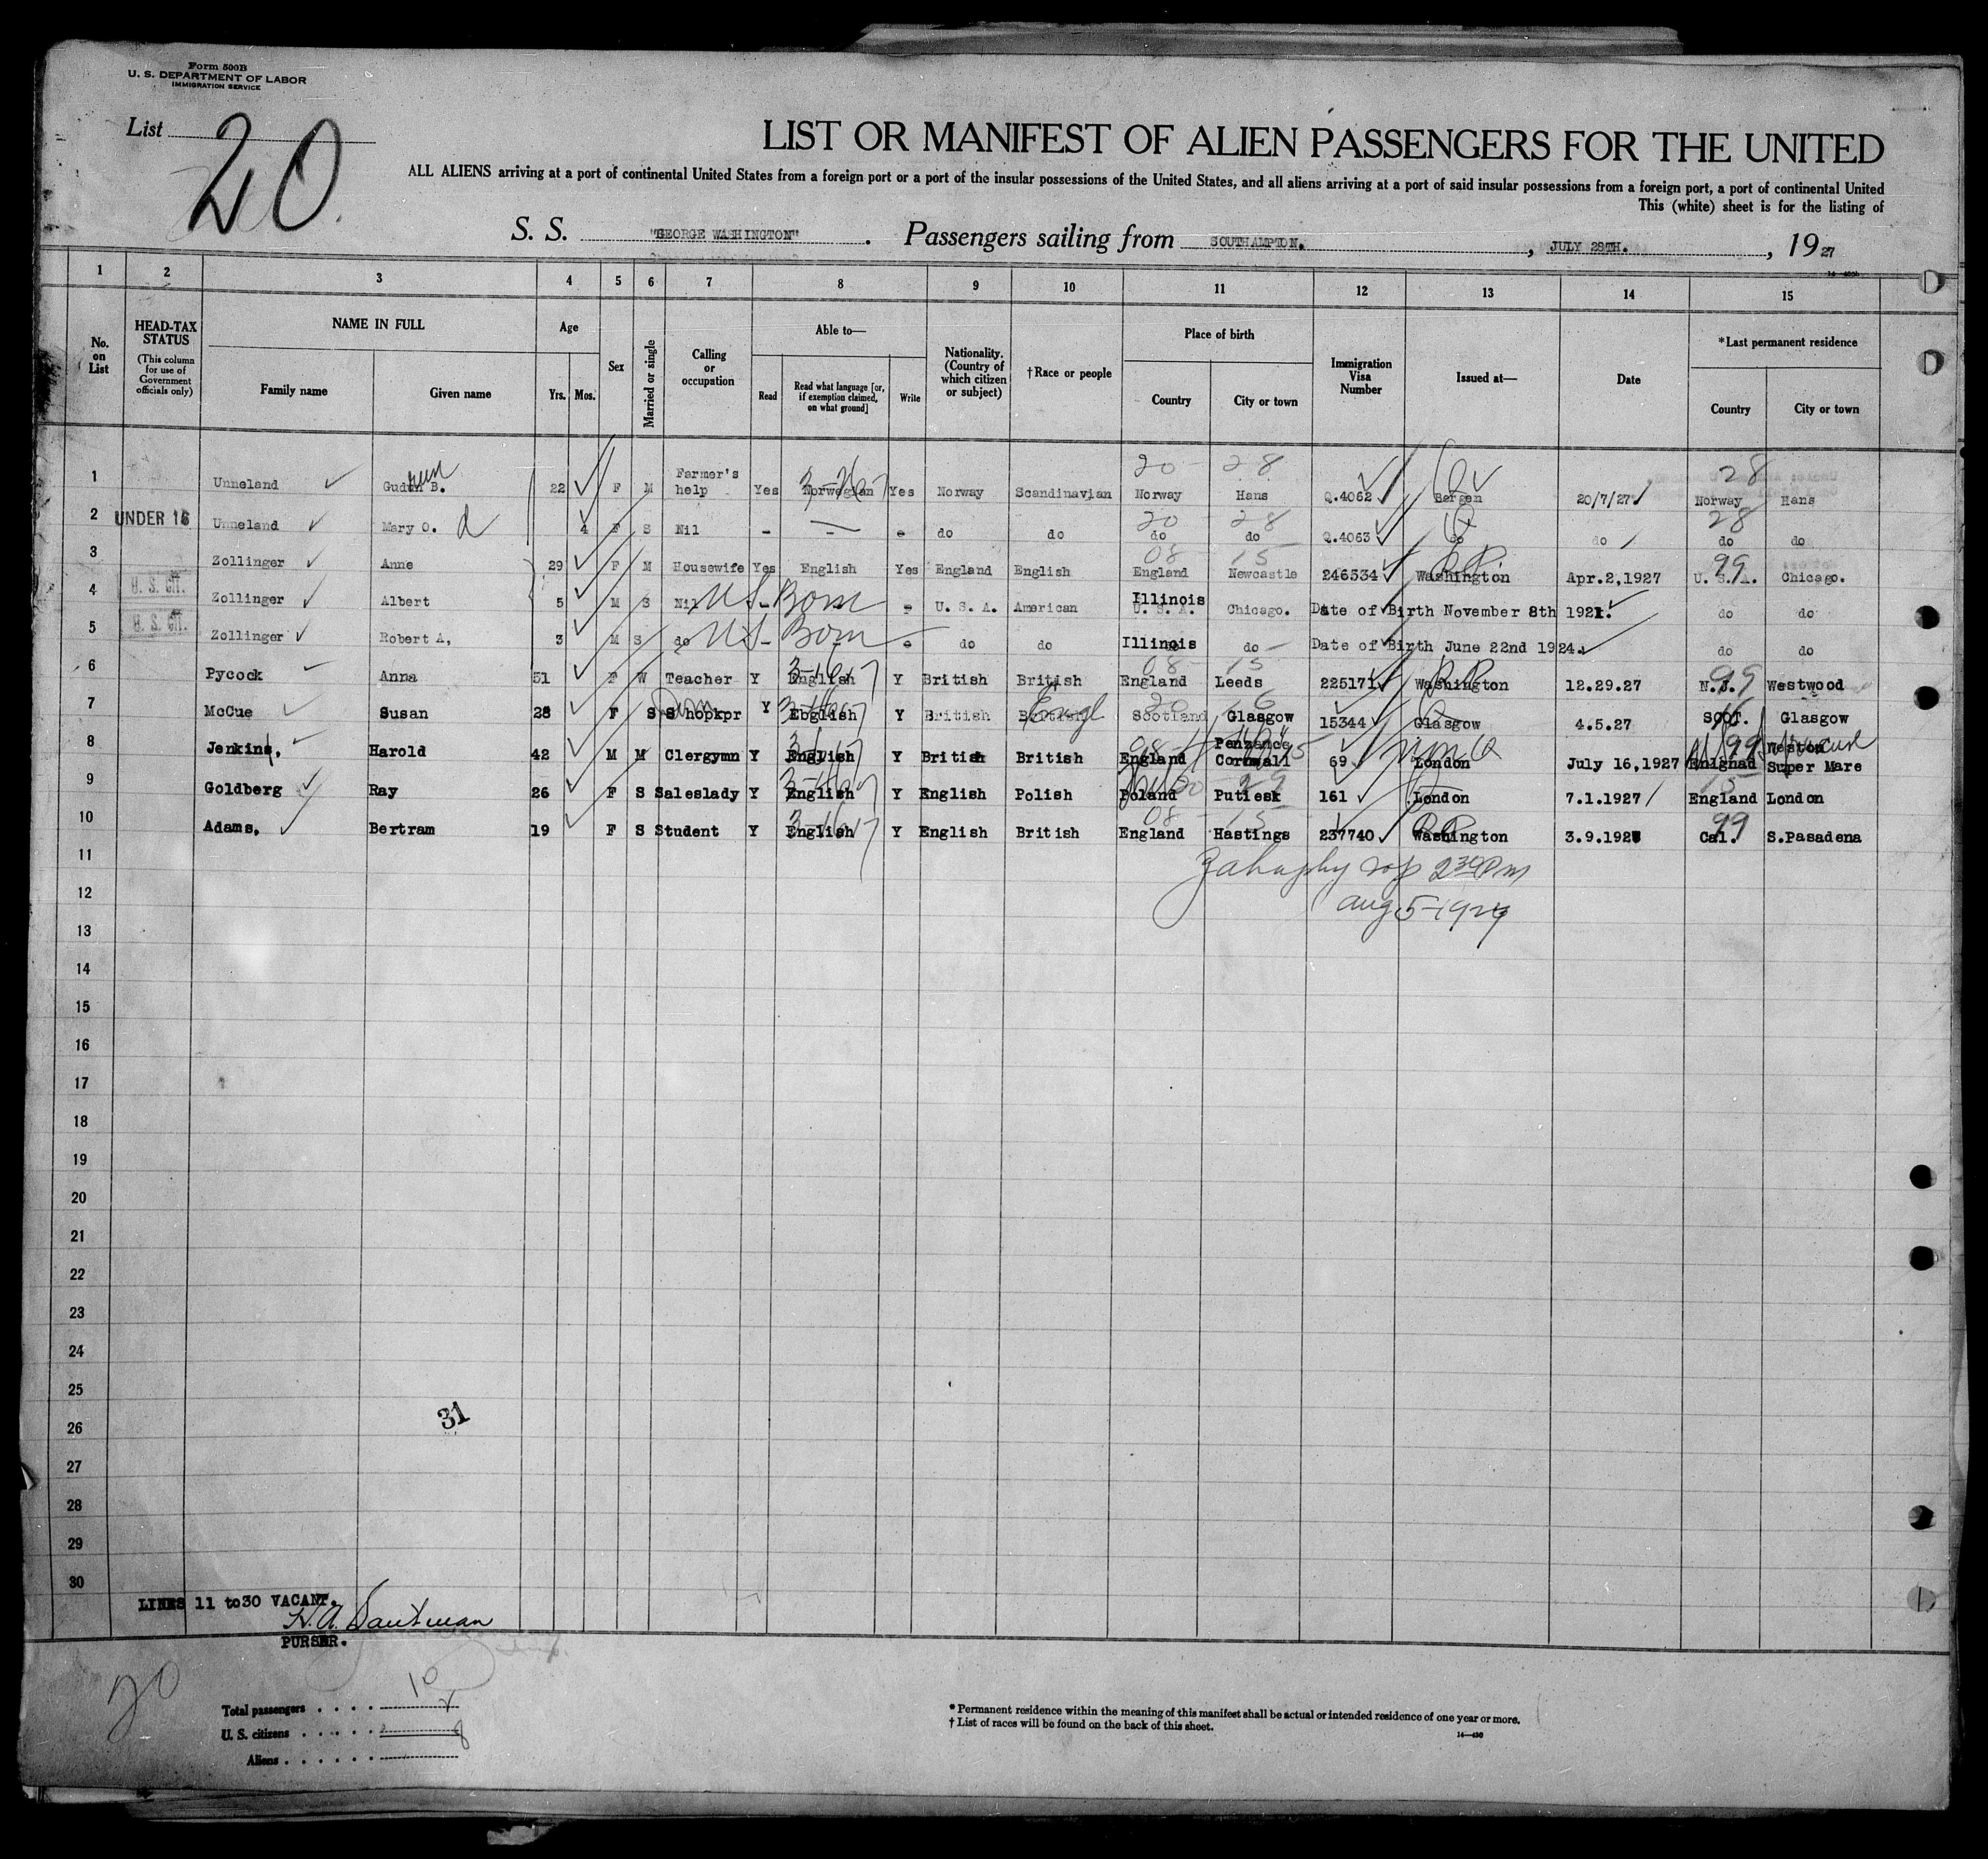 Form 500B
U. S. DEPARTMENT OF LABOR
IMMIGRATION SERVICE
List 20
LIST OR MANIFEST OF ALIEN PASSENGERS FOR THE UNITED
ALL ALIENS arriving at a port of continental United States from a foreign port or a port of the insular possessions of the United States, and all aliens arriving at a port of said insular possessions from a foreign port, a port of continental United
This (white) sheet is for the listing of
S. S. "GEORGE WASHINGTON". Passengers sailing from SOUTHAMPTON. , JULY 28TH. , 1927
1 2 3 4 5 6 7 8 9 10 11 12 13 14 15
No. on List
HEAD-TAX STATUS (This column for use of Government officials only)
NAME IN FULL
Family name Given name
Age
Yrs. Mos.
Sex
Married or single
Calling or occupation
Able to—
Read Read what language [or, if exemption claimed, on what ground] Write
Nationality. (Country of which citizen or subject)
†Race or people
Place of birth
Country City or town
Immigration Visa Number
Issued at—
Date
*Last permanent residence
Country City or town
20 28 28
1 Unneland Gudun B. run 22 F M Farmer's help Yes Norwegian Yes Norway Scandinavian Norway Hans Q.4062 Bergen 20/7/27 Norway Hans
20 28 28
2 UNDER 16 Unneland Mary O. d 4 F S Nil - — - do do do do Q.4063 do do do do
08 15 99
3 Zollinger Anne 29 F M Housewife Yes English Yes England English England Newcastle 246534 Washington Apr.2,1927 U. S. A. Chicago.
4 U. S. CIT. Zollinger Albert 5 M S Nil US - Born - U. S. A. American Illinois U. S. A. Chicago. Date of Birth November 8th 1921. do do
5 U. S. CIT. Zollinger Robert A, 3 M S do US - Born - do do Illinois do do Date of Birth June 22nd 1924. do do
08 15 99
6 Pycock Anna 51 F W Teacher Y English Y British British England Leeds 225171 Washington 12.29.27 N.J. Westwood
7 McCue Susan 28 F S S hopkpr Dom Y Ebglish Y British British Engl Scotland Glasgow 15344 Glasgow 4.5.27 SCOT. Glasgow
8 Jenkins, Harold 42 M M Clergymn Y English Y British British England Penzance Cornwall 69 London July 16,1927 Enlgnad Weston Super Mare
9 Goldberg Ray 26 F S Saleslady Y English Y English Polish Poland Putiesk 161 London 7.1.1927 England London
08 15 99
10 Adams, Bertram 19 F S Student Y English Y English British England Hastings 237740 Washington 3.9.1927 Cal. S.Pasadena
11
2 30 Pm
12
aug 5-1927
13
14
15
16
17
18
19
20
21
22
23
24
25
26
31
27
28
29
30
LINES 11 to30 VACANT.
PURSER.
20
Total passengers 10
U. S. citizens 2
Aliens 8
* Permanent residence within the meaning of this manifest shall be actual or intended residence of one year or more.
† List of races will be found on the back of this sheet.
14—430